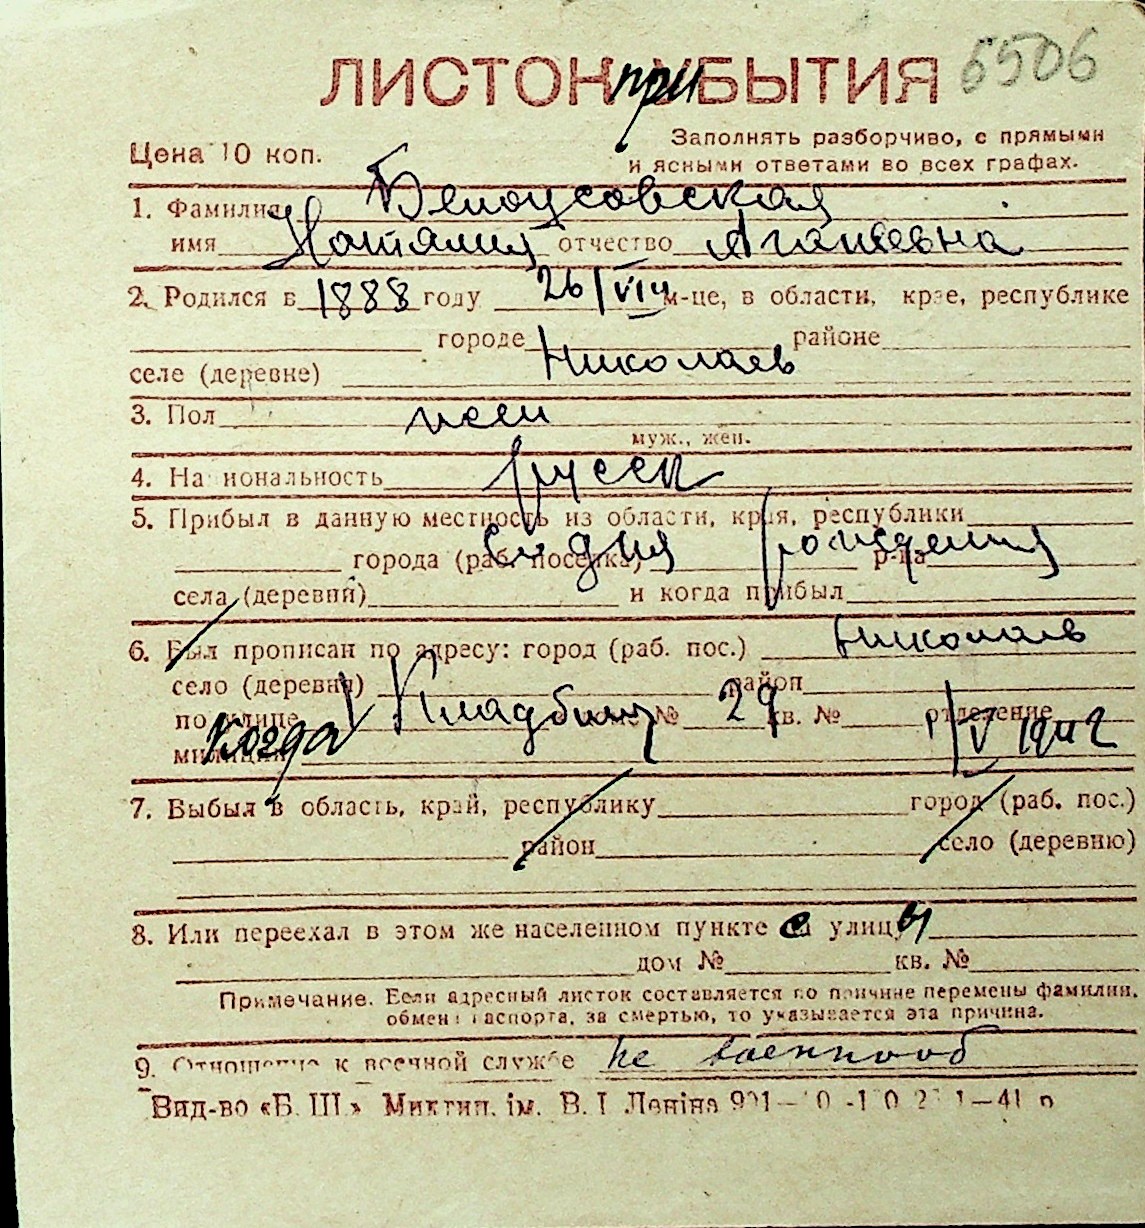 ЛИСТОК при УБЫТИЯ 5506
Цена 10 коп.
Заполнять разборчиво, с прямыми
и ясными ответами во всех графах.
1. Фамилия Белоусовская
имя Наталия отчество Агапьевна
2. Родился в 1888 году 26/VIII м-це, в области, крае, республике
городе Николаев районе
селе (деревне)
3. Пол жен
муж., жен.
4. Национальность русск
5. Прибыл в данную местность из области, края, республики
города (раб. поселка) со дня рождения р-на
села (деревни) и когда прибыл
6. Был прописан по адресу: город (раб. пос.) Николаев
село (деревня) район
по улице Кладбищ № 29 кв. № отделение
милиции Когда 1/V 1942
7. Выбыл в область, край, республику город (раб. пос.)
район село (деревню)
8. Или переехал в этом же населенном пункте с улицы
дом № кв. №
Примечание. Если адресный листок составляется по причине перемены фамилии,
обмена паспорта, за смертью, то указывается эта причина.
9. Отношение к военной службе не военнооб
Вид-во «Б. Ш.» Миктип. ім. В. І. Леніна